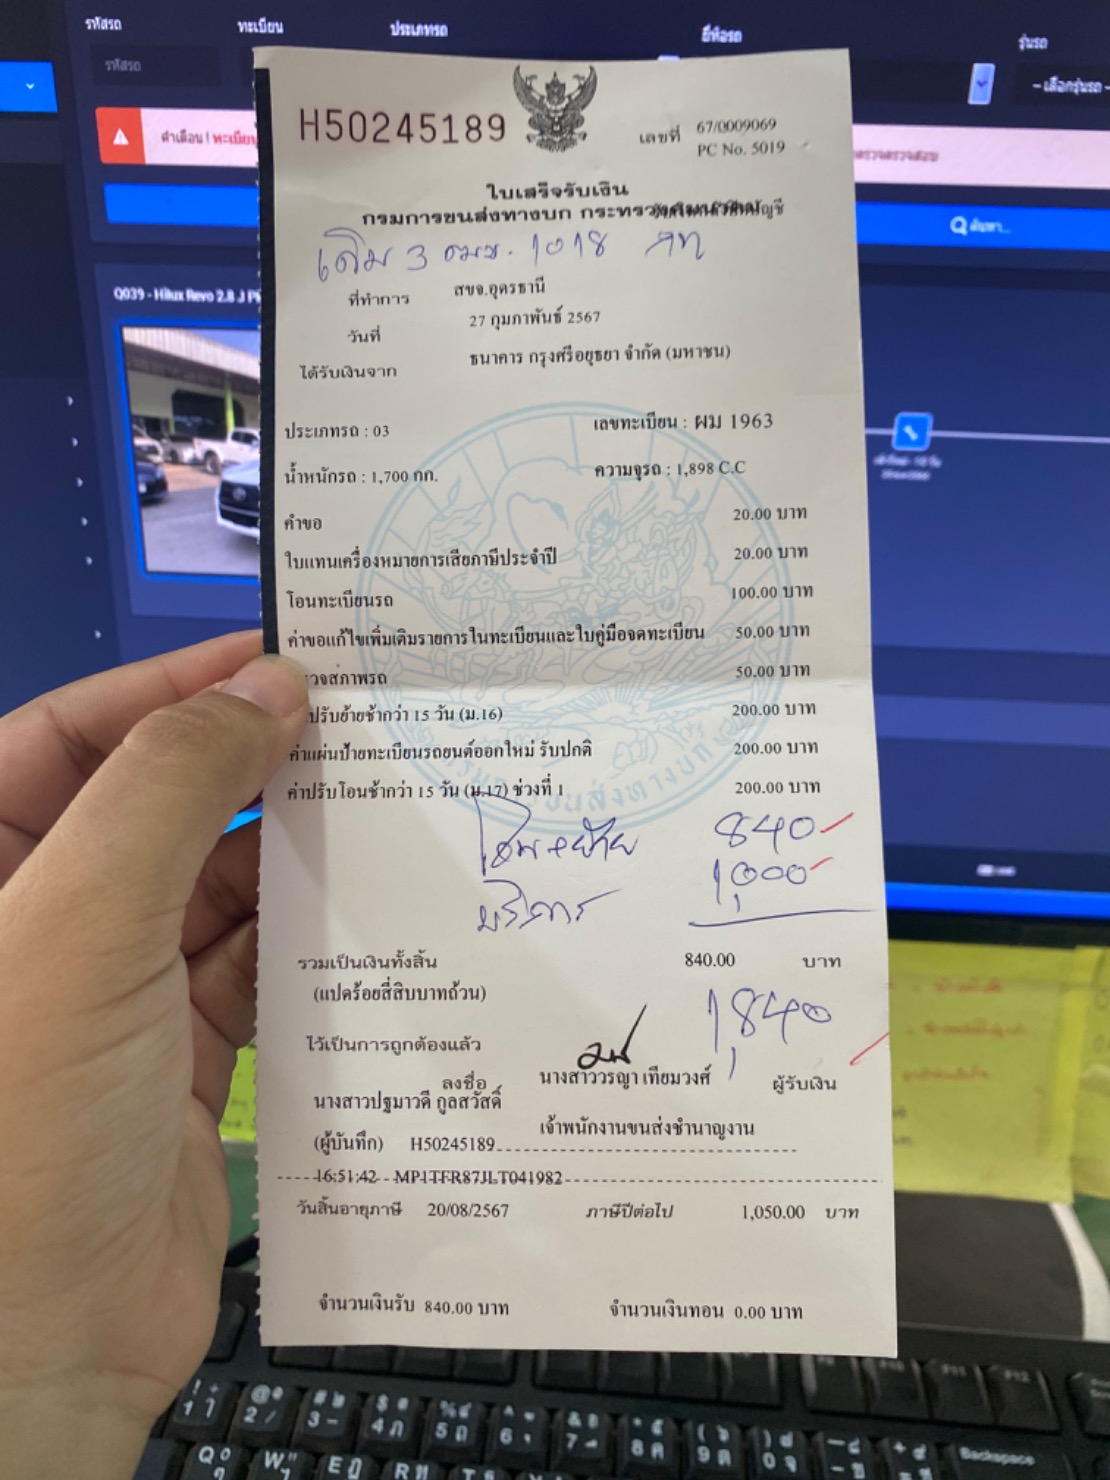 รหัสรถ ทะเบียน ประเภทรถ ยี่ห้อรถ รุ่นรถ
รหัสรถ
-- เลือกรุ่นรถ -
คำเตือน ! ทะเบียน
ค้นหา...
Q039 - Hilux Revo 2.8 J
H50245189
เลขที่ 67/0009069
PC No. 5019
ใบเสร็จรับเงิน
กรมการขนส่งทางบก กระทรวงคมนาคม
เดิม 3 ฒฆ. 1018 กท
ที่ทำการ สขจ.อุดรธานี
วันที่ 27 กุมภาพันธ์ 2567
ได้รับเงินจาก ธนาคาร กรุงศรีอยุธยา จำกัด (มหาชน)
ประเภทรถ : 03 เลขทะเบียน : ผม 1963
น้ำหนักรถ : 1,700 กก. ความจุรถ : 1,898 C.C
คำขอ 20.00 บาท
ใบแทนเครื่องหมายการเสียภาษีประจำปี 20.00 บาท
โอนทะเบียนรถ 100.00 บาท
ค่าขอแก้ไขเพิ่มเติมรายการในทะเบียนและใบคู่มือจดทะเบียน 50.00 บาท
วจสภาพรถ 50.00 บาท
ปรับย้ายช้ากว่า 15 วัน (ม.16) 200.00 บาท
ค่าแผ่นป้ายทะเบียนรถยนต์ออกใหม่ รับปกติ 200.00 บาท
ค่าปรับโอนช้ากว่า 15 วัน (ม.17) ช่วงที่ 1 200.00 บาท
โอน+ย้าย 840
บริการ 1,000
รวมเป็นเงินทั้งสิ้น 840.00 บาท
(แปดร้อยสี่สิบบาทถ้วน)
1,840
ไว้เป็นการถูกต้องแล้ว
ลงชื่อ นางสาววรญา เทียมวงศ์ ผู้รับเงิน
นางสาวปฐมาวดี กูลสวัสดิ์
เจ้าพนักงานขนส่งชำนาญงาน
(ผู้บันทึก) H50245189
16:51:42 MP1TFR87JLT041982
วันสิ้นอายุภาษี 20/08/2567 ภาษีปีต่อไป 1,050.00 บาท
จำนวนเงินรับ 840.00 บาท จำนวนเงินทอน 0.00 บาท
Backspace